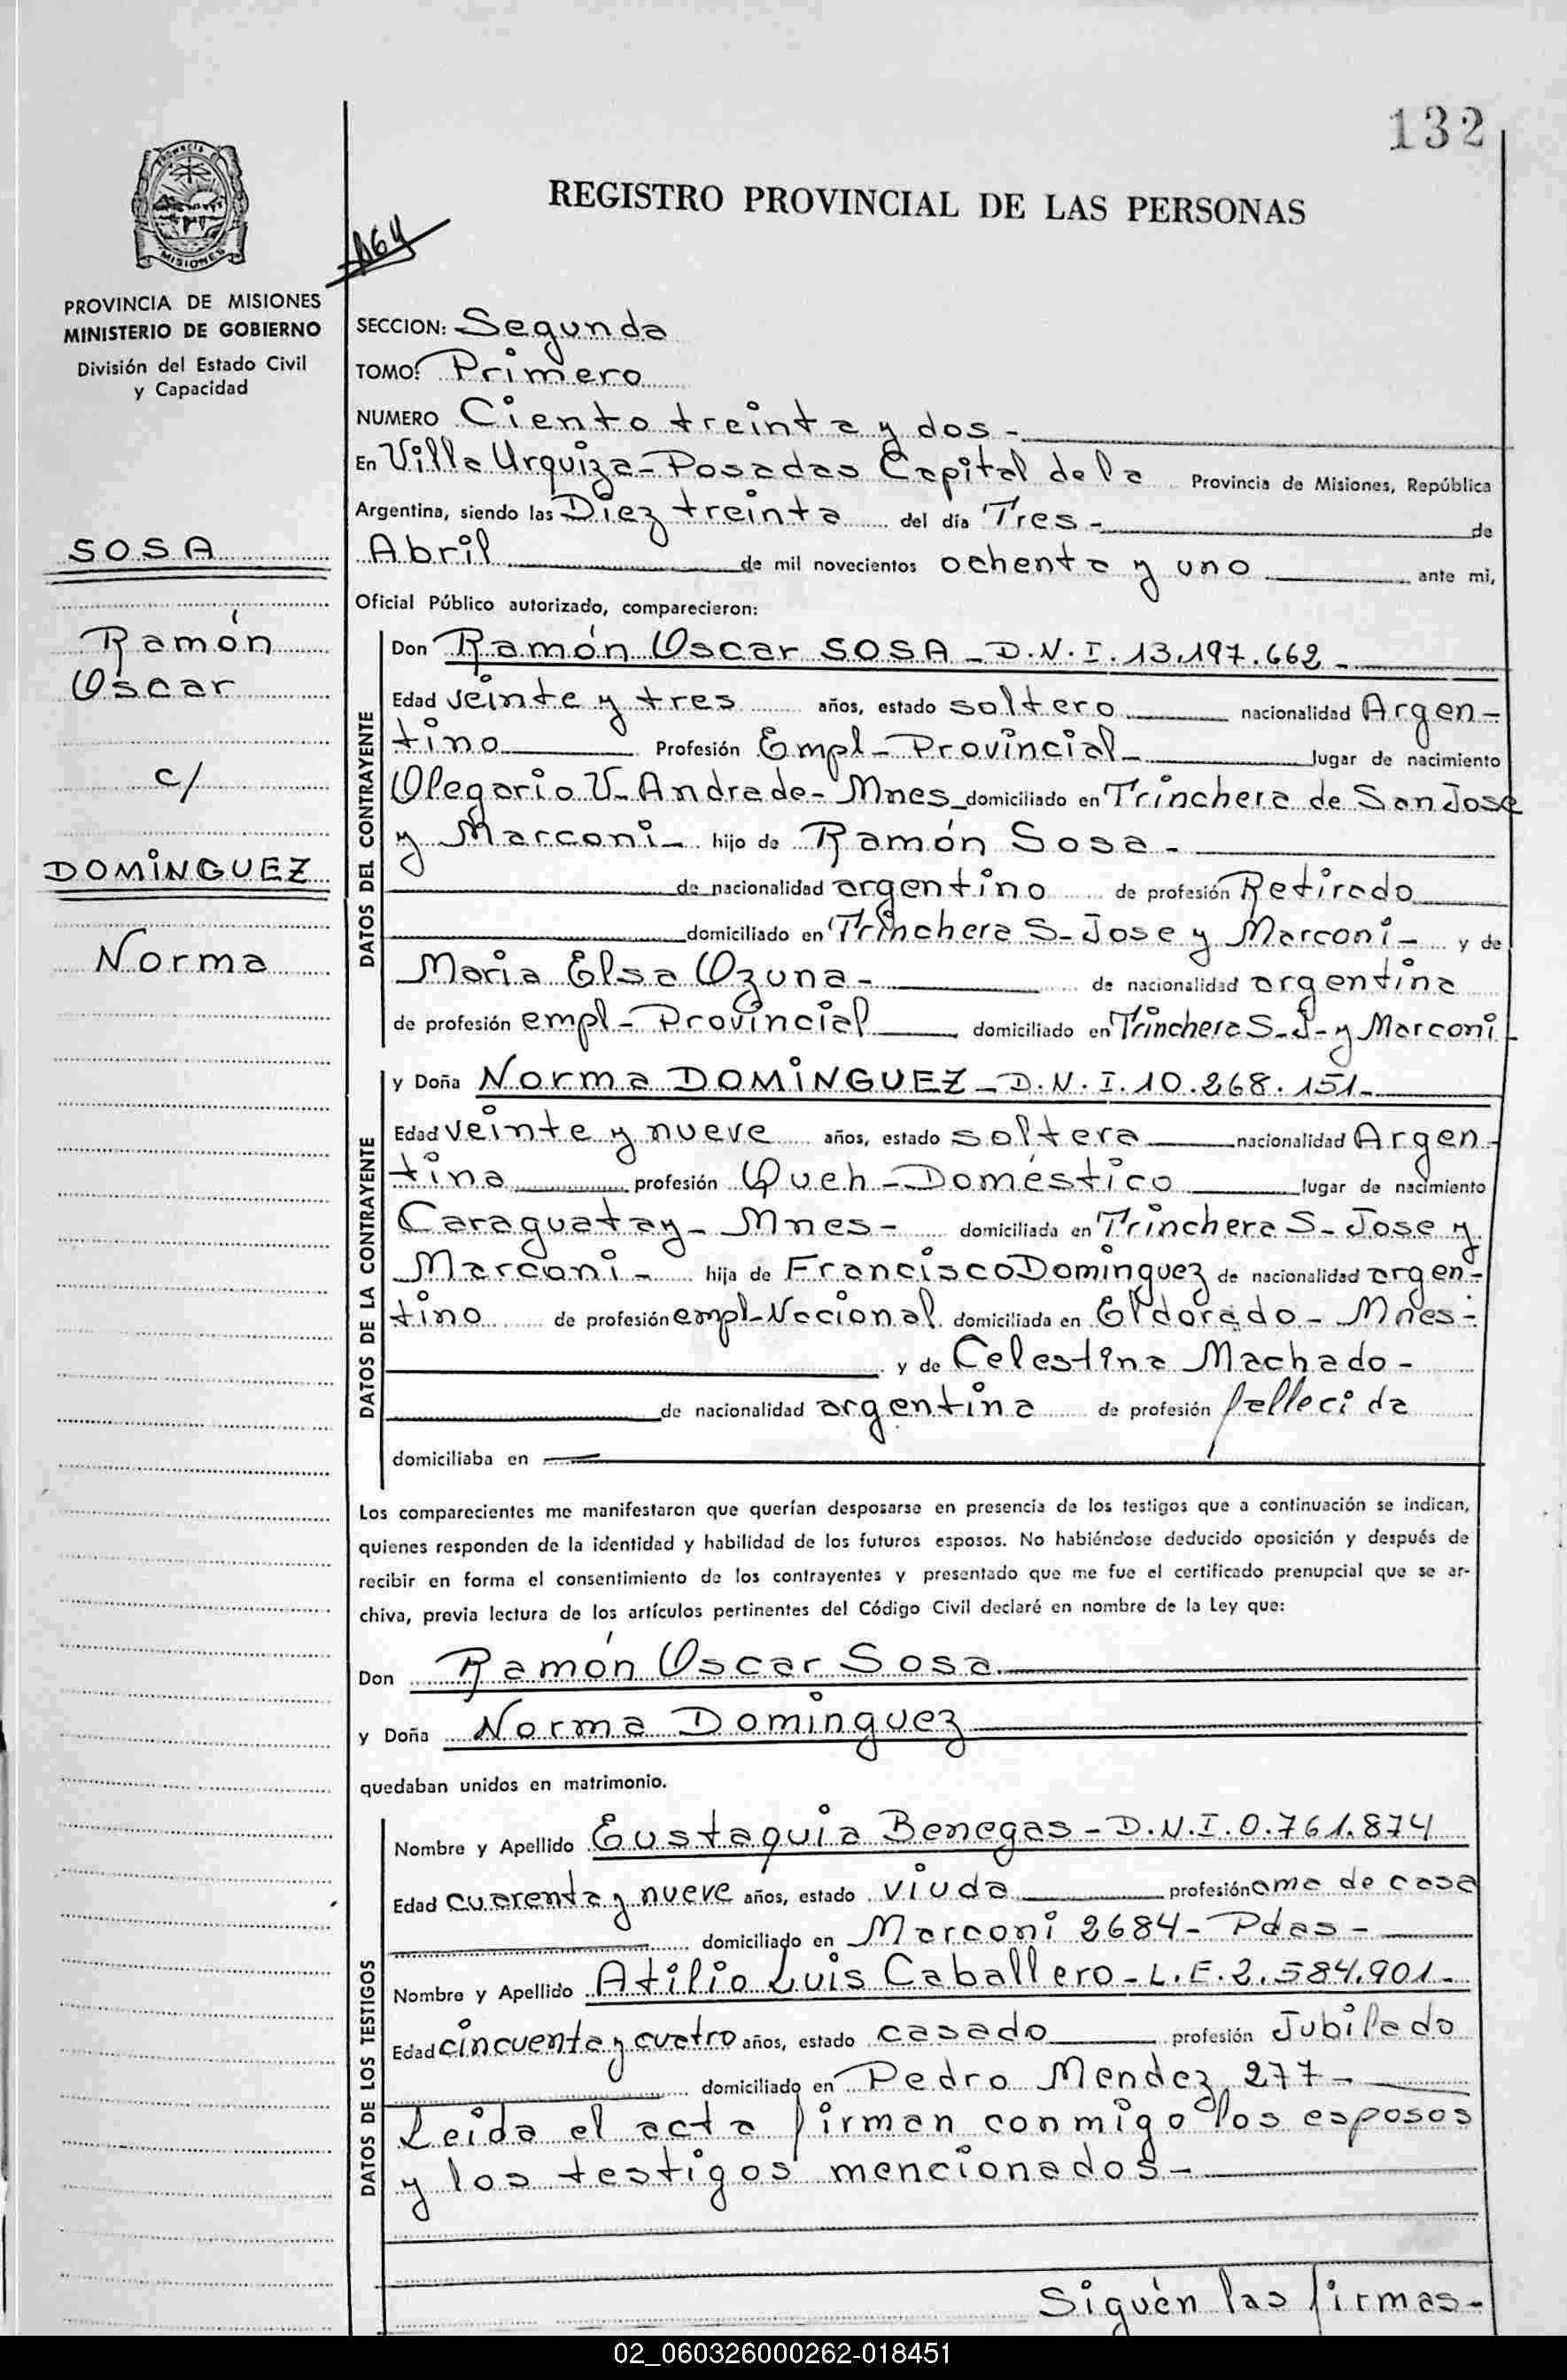 132
REGISTRO PROVINCIAL DE LAS PERSONAS
MISIONES
PROVINCIA DE MISIONES
MINISTERIO DE GOBIERNO
División del Estado Civil
y Capacidad
SOSA
Ramón
Oscar
c/
DOMINGUEZ
Norma
SECCION: Segunda
TOMO: Primero
NUMERO Ciento treinta y dos -
En Villa Urquiza - Posadas Capital de la Provincia de Misiones, República
Argentina, siendo las Diez treinta del día Tres - de
Abril de mil novecientos ochenta y uno ante mi,
Oficial Público autorizado, comparecieron:
DATOS DEL CONTRAYENTE
Don Ramón Oscar SOSA - D.N.I. 13.197.662 -
Edad veinte y tres años, estado soltero nacionalidad Argen-
tino Profesión Empl - Provincial - lugar de nacimiento
Olegario V. Andrade - Mnes - domiciliado en Trinchera de San Jose
y Marconi - hijo de Ramón Sosa -
de nacionalidad argentino de profesión Retirado
domiciliado en Trinchera S - Jose y Marconi - y de
Maria Elsa Ozuna - de nacionalidad argentina
de profesión empl - Provincial domiciliado en Trinchera S - J - y Marconi -
DATOS DE LA CONTRAYENTE
y Doña Norma DOMINGUEZ - D.N.I. 10.268.151 -
Edad veinte y nueve años, estado soltera nacionalidad Argen-
tina profesión Queh - Doméstico lugar de nacimiento
Caraguatay - Mnes - domiciliada en Trinchera S - Jose y
Marconi - hija de Francisco Dominguez de nacionalidad argen-
tino de profesión empl - Nacional domiciliada en Eldorado - Mnes -
y de Celestina Machado -
de nacionalidad argentina de profesión fallecida
domiciliaba en
Los comparecientes me manifestaron que querían desposarse en presencia de los testigos que a continuación se indican,
quienes responden de la identidad y habilidad de los futuros esposos. No habiéndose deducido oposición y después de
recibir en forma el consentimiento de los contrayentes y presentado que me fue el certificado prenupcial que se ar-
chiva, previa lectura de los artículos pertinentes del Código Civil declaré en nombre de la Ley que:
Don Ramón Oscar Sosa
y Doña Norma Dominguez
quedaban unidos en matrimonio.
DATOS DE LOS TESTIGOS
Nombre y Apellido Eustaquia Benegas - D.N.I. 0.761.874
Edad cuarenta y nueve años, estado viuda profesión ama de casa
domiciliado en Marconi 2684 - Pdas -
Nombre y Apellido Atilio Luis Caballero - L.E. 2.584.901 -
Edad cincuenta y cuatro años, estado casado profesión Jubilado
domiciliado en Pedro Mendez 277 -
Leida el acta firman conmigo los esposos
y los testigos mencionados -
Siguen las firmas -
02_060326000262-018451